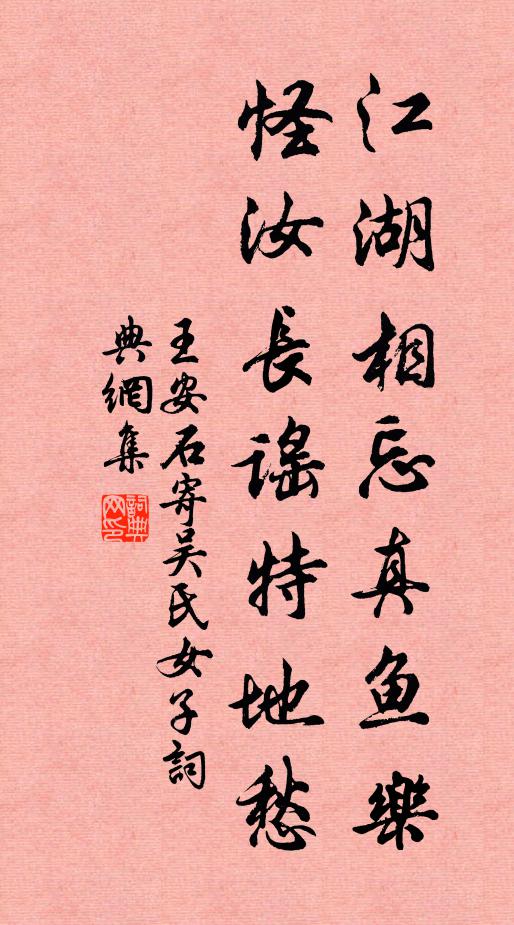 江湖相忘真鱼樂
怪汝長謠特地愁
王安石寄吴氏女子詞
典網集
詞典网印